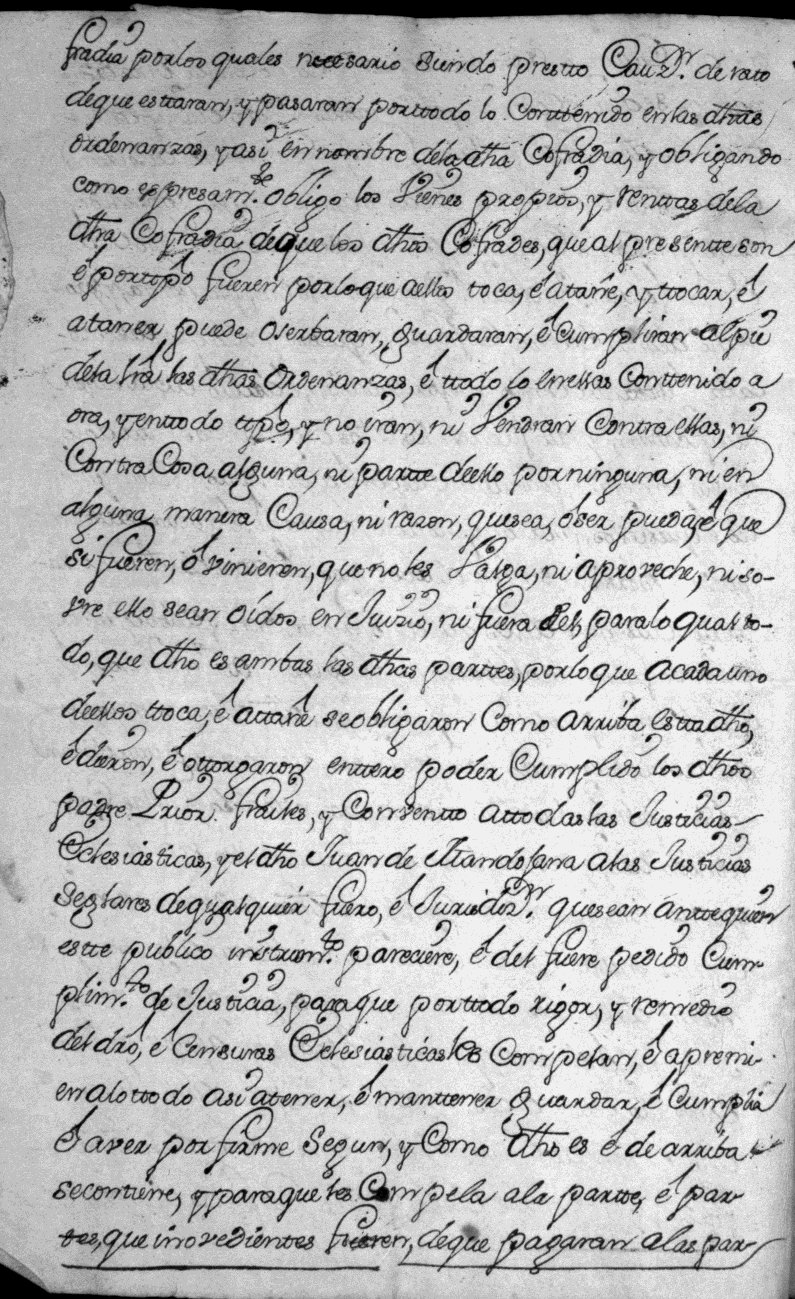 fradia por los quales necesario siendo prestto Cauz.on de rato
de que esttaran, y pasaran por ttodo lo Conttenido en las dhas
ordenanzas, y asi en nombre de la dha Cofradia, y obligando
como expresam.te obligo los Vienes propios, y renttas de la
dha Cofradia de que los dhos Cofrades, que al presentte son
é por ttpo fueren por lo que a ellos toca, é atañe, y ttocar, é
atañer puede oserbaran, guardaran, é Cumpliran al pie
de la lrã las dhas Ordenanzas, é ttodo lo en ellas Conttenido a
ora, y en ttodo ttpo, y no iran, ni Vendran Contra ellas, ni
Contra Cosa alguna, ni partte de ello por ninguna, ni en
alguna manera Causa, ni razon, que sea, ó ser pueda, é que
si fueren, ó vinieren, que no les Valga, ni aproveche, ni so-
vre ello sean oidos en Juizio, ni fuera del, para lo qual to-
do, que dho es ambas las dhas parttes, por lo que a cada uno
de ellos ttoca, é attañe se obligaron Como arriba estta dho,
é dieron, é ottorgaron enttero poder Cumplido los dhos
padre Prior. frailes, y Conventto a ttodas las Justicias
Eclesiasticas, y el dho Juan de Mandojana a las Justicias
Seglares de qualquier fuero, é Jurisdiz.on que sean antte quien
estte publico instrum.to pareciere, é del fuere pedido Cum-
plim.to de Justicia, para que por ttodo rigor, y remedio
del dro, é Censuras Eclesiasticas les Compelan, é apremi-
en a lo ttodo asi a tener, é manttener guardar, é Cumplir
é aver por firme Segun, y Como dho es é de arriba
se contiene, y para que les Compela a la partte, é par-
tes, que inovedientes fueren, de que pagaran a las par-